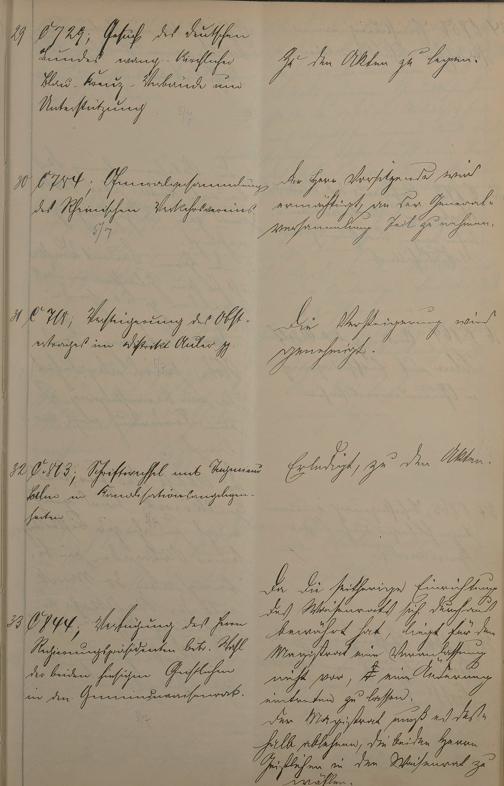 29 C 729, Gesuch des deutschen
Bundes evang. kirchlicher
Blau-Kreuz-Verbände um
Unterstützung
Zu den Akten zu legen.
30 C 784; Generalversammlung
des Rheinischen Verkehrsvereins
5/7
Der Herr Vorsitzende wird
ermächtigt, an der General-
versammlung Teil zu nehmen.
31 C 768; Versteigerung des Obst-
ertrages im Distrikt Auler pp
Die Versteigerung wird
genehmigt.
32 C. 813; Schriftwechsel mit Ingenieur
in Kanalisationsangelegen-
heiten
Erledigt, zu den Akten.
33 C 844; Verfügung des Herrn
Regierungspräsidenten betr. Wahl
der beiden hiesigen Geistlichen
in den Gemeindewaisenrat.
Da die seitherige Einrichtung
des Waisenrats sich durchaus
bewährt hat, liegt für den
Magistrat eine Veranlassung
nicht vor, eine Änderung
eintreten zu lassen.
Der Magistrat muß es des-
halb ablehnen, die beiden Herren
Geistlichen in den Waisenrat zu
wählen.